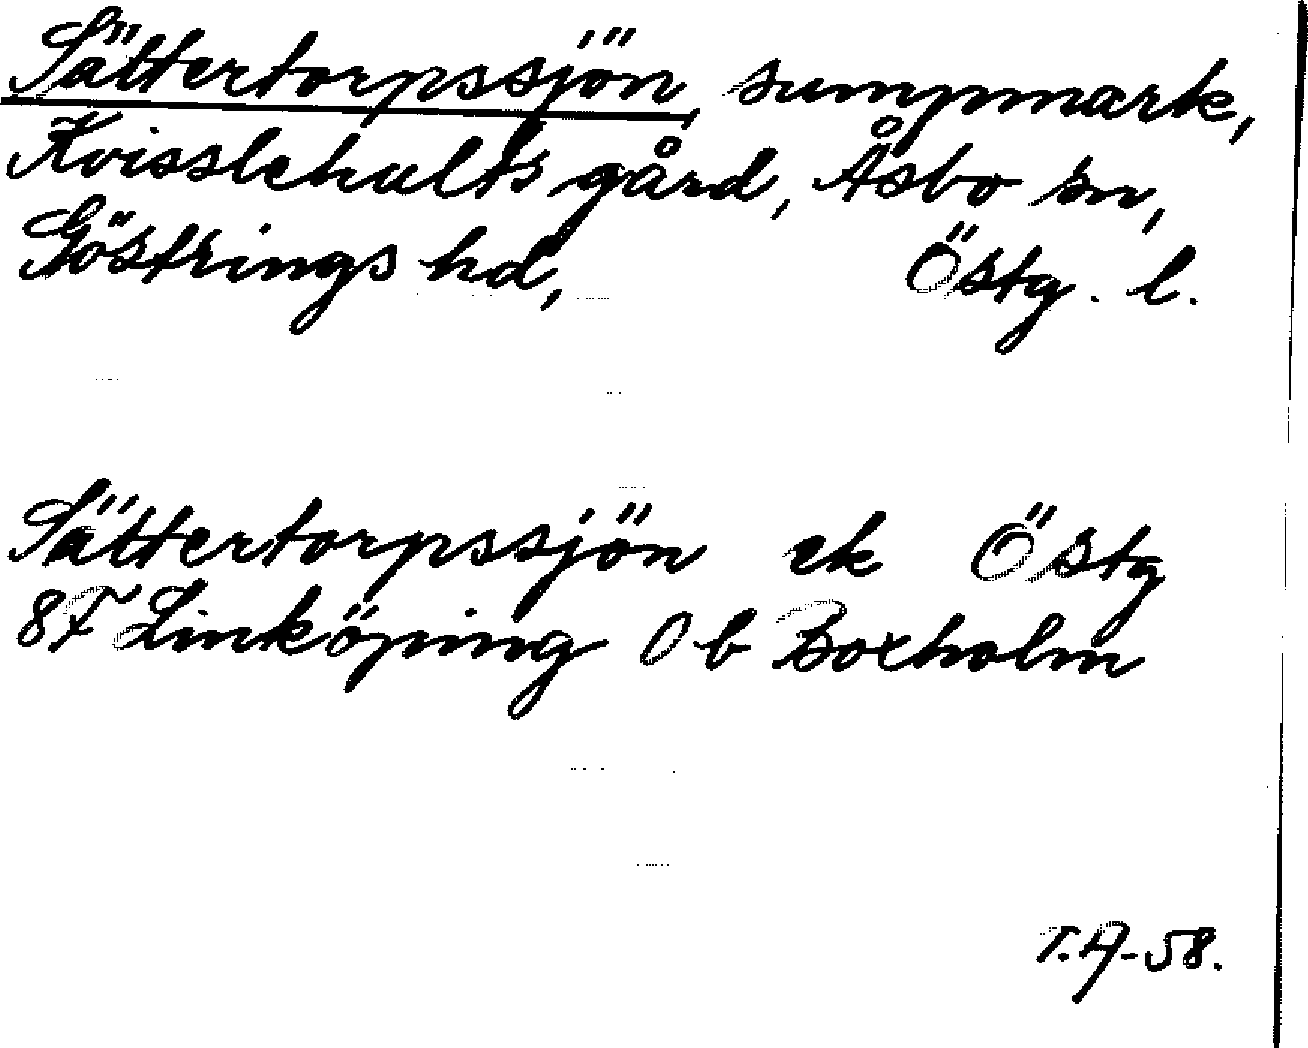 Sättertorpssjön, sumpmark,
Kvisslehults gård, Åsbo sn,
Göstrings hd, Östg. l.
Sättertorpssjön ek Östg
8F Linköping 0 b Boxholm
T.A-58.